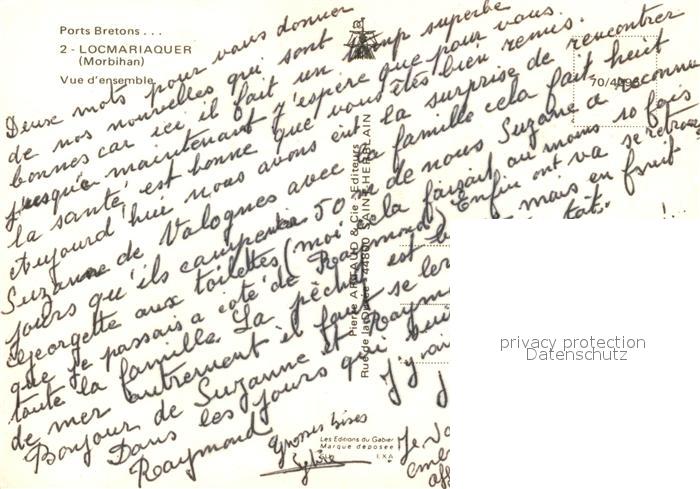 Ports Bretons . . .
2 - LOCMARIAQUER
(Morbihan)
Vue d'ensemble
70/4496
Pierre ARTAUD & Cie - Editeurs
Rue de la 44800 SAINT-HERBLAIN
Deux mots pour vous donner
de nos nouvelles qui sont
bonnes car ici il fait un temp superbe
jusqu'a maintenant j'espère que pour vous.
la santé est bonne que vous êtes bien remis.
Aujourd'hui nous avons eut la surprise de rencontrer
Suzanne de Valognes avec sa famille cela fait heut
jours qu'ils campent a 50 m de nous Suzane a reconnu
Georgette aux toilettes (moi cela faizait au moins 10 fois
que je passais a coté de Raymond) Enfin ont va se retrouver
toute la famille. La pêche est mais en fruit
de mer autrement il faut se lever
Bonjour de Suzanne et Raymond
Dans les jours qui
Raymond
J'y vais
Grosses bises
Sylvie
Les Editions du Gabier
Marque déposée
I.X.A.
Je
privacy protection
Datenschutz